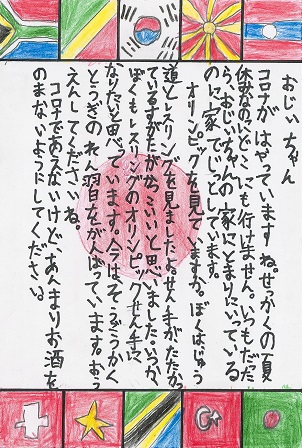 おじいちゃん
コロナがはやっていますね。せっかくの夏
休みなのにどこにも行けません。いつもだた
ら、おじいちゃんの家にとまりにいっている
のに、家でじっとしています。
オリンピックを見ていますか。ぼくはじゅう
道とレスリングを見ました。せん手がたたかっ
ているすがたがかっこいいと思いました。いつか、
ぼくもレスリングのオリンピックせん手に
なりたいと思っています。今はそうごうかく
とうぎのれん習をがんばっています。おう
えんしてくださいね。
コロナであえないけど、あんまりお酒を
のまないようにしてください。